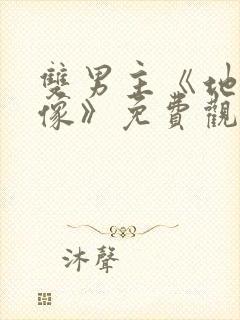 雙男主《地
像》免費觀
沐聲